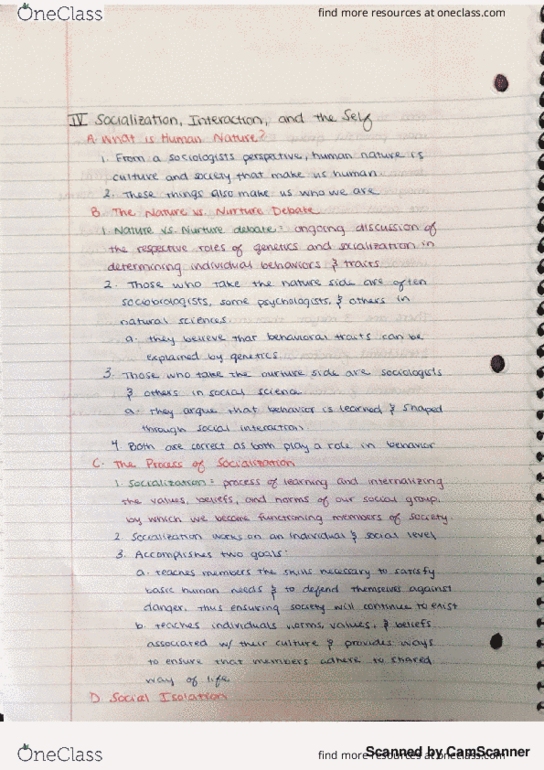 OneClass
find more resources at oneclass.com
IV Socialization, Interaction, and the Self
A. What is Human Nature?
1. From a sociologists perspective, human nature is
culture and society that make us human
2. These things also make us who we are
B. The Nature vs. Nurture Debate
1. Nature vs. Nurture debate: ongoing discussion of
the respective roles of genetics and socialization in
determining individual behaviors & traits
2. Those who take the nature side are often
sociobiologists, some psychologists, & others in
natural sciences
a. they believe that behavioral traits can be
explained by genetics
3. Those who take the nurture side are sociologists
& others in social science
a. they argue that behavior is learned & shaped
through social interaction
4. Both are correct as both play a role in behavior
C. The Process of Socialization
1. Socialization: process of learning and internalizing
the values, beliefs, and norms of our social group,
by which we become functioning members of society.
2. Socialization works on an individual & social level
3. Accomplishes two goals:
a. teaches members the skills necessary to satisfy
basic human needs & to defend themselves against
danger, thus ensuring society will continue to exist
b. teaches individuals norms, values, & beliefs
associated w/ their culture & provides ways
to ensure that members adhere to shared
way of life
D. Social Isolation
OneClass
find more resources at oneclass.com
Scanned by CamScanner